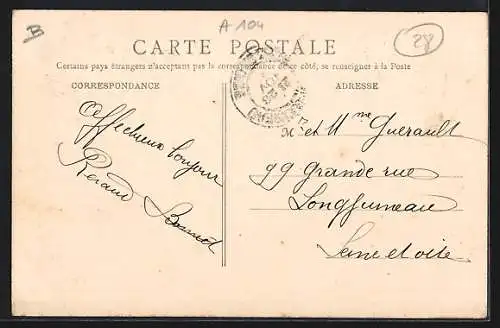 B
A 104
28
CARTE POSTALE
Certains pays étrangers n'acceptent pas la correspondance de ce côté, se renseigner à la Poste
CORRESPONDANCE
ADRESSE
Affectueux bonjour
Renaud
M et Mme Guerault
99 Grande rue
Longjumeau
Seine et oise